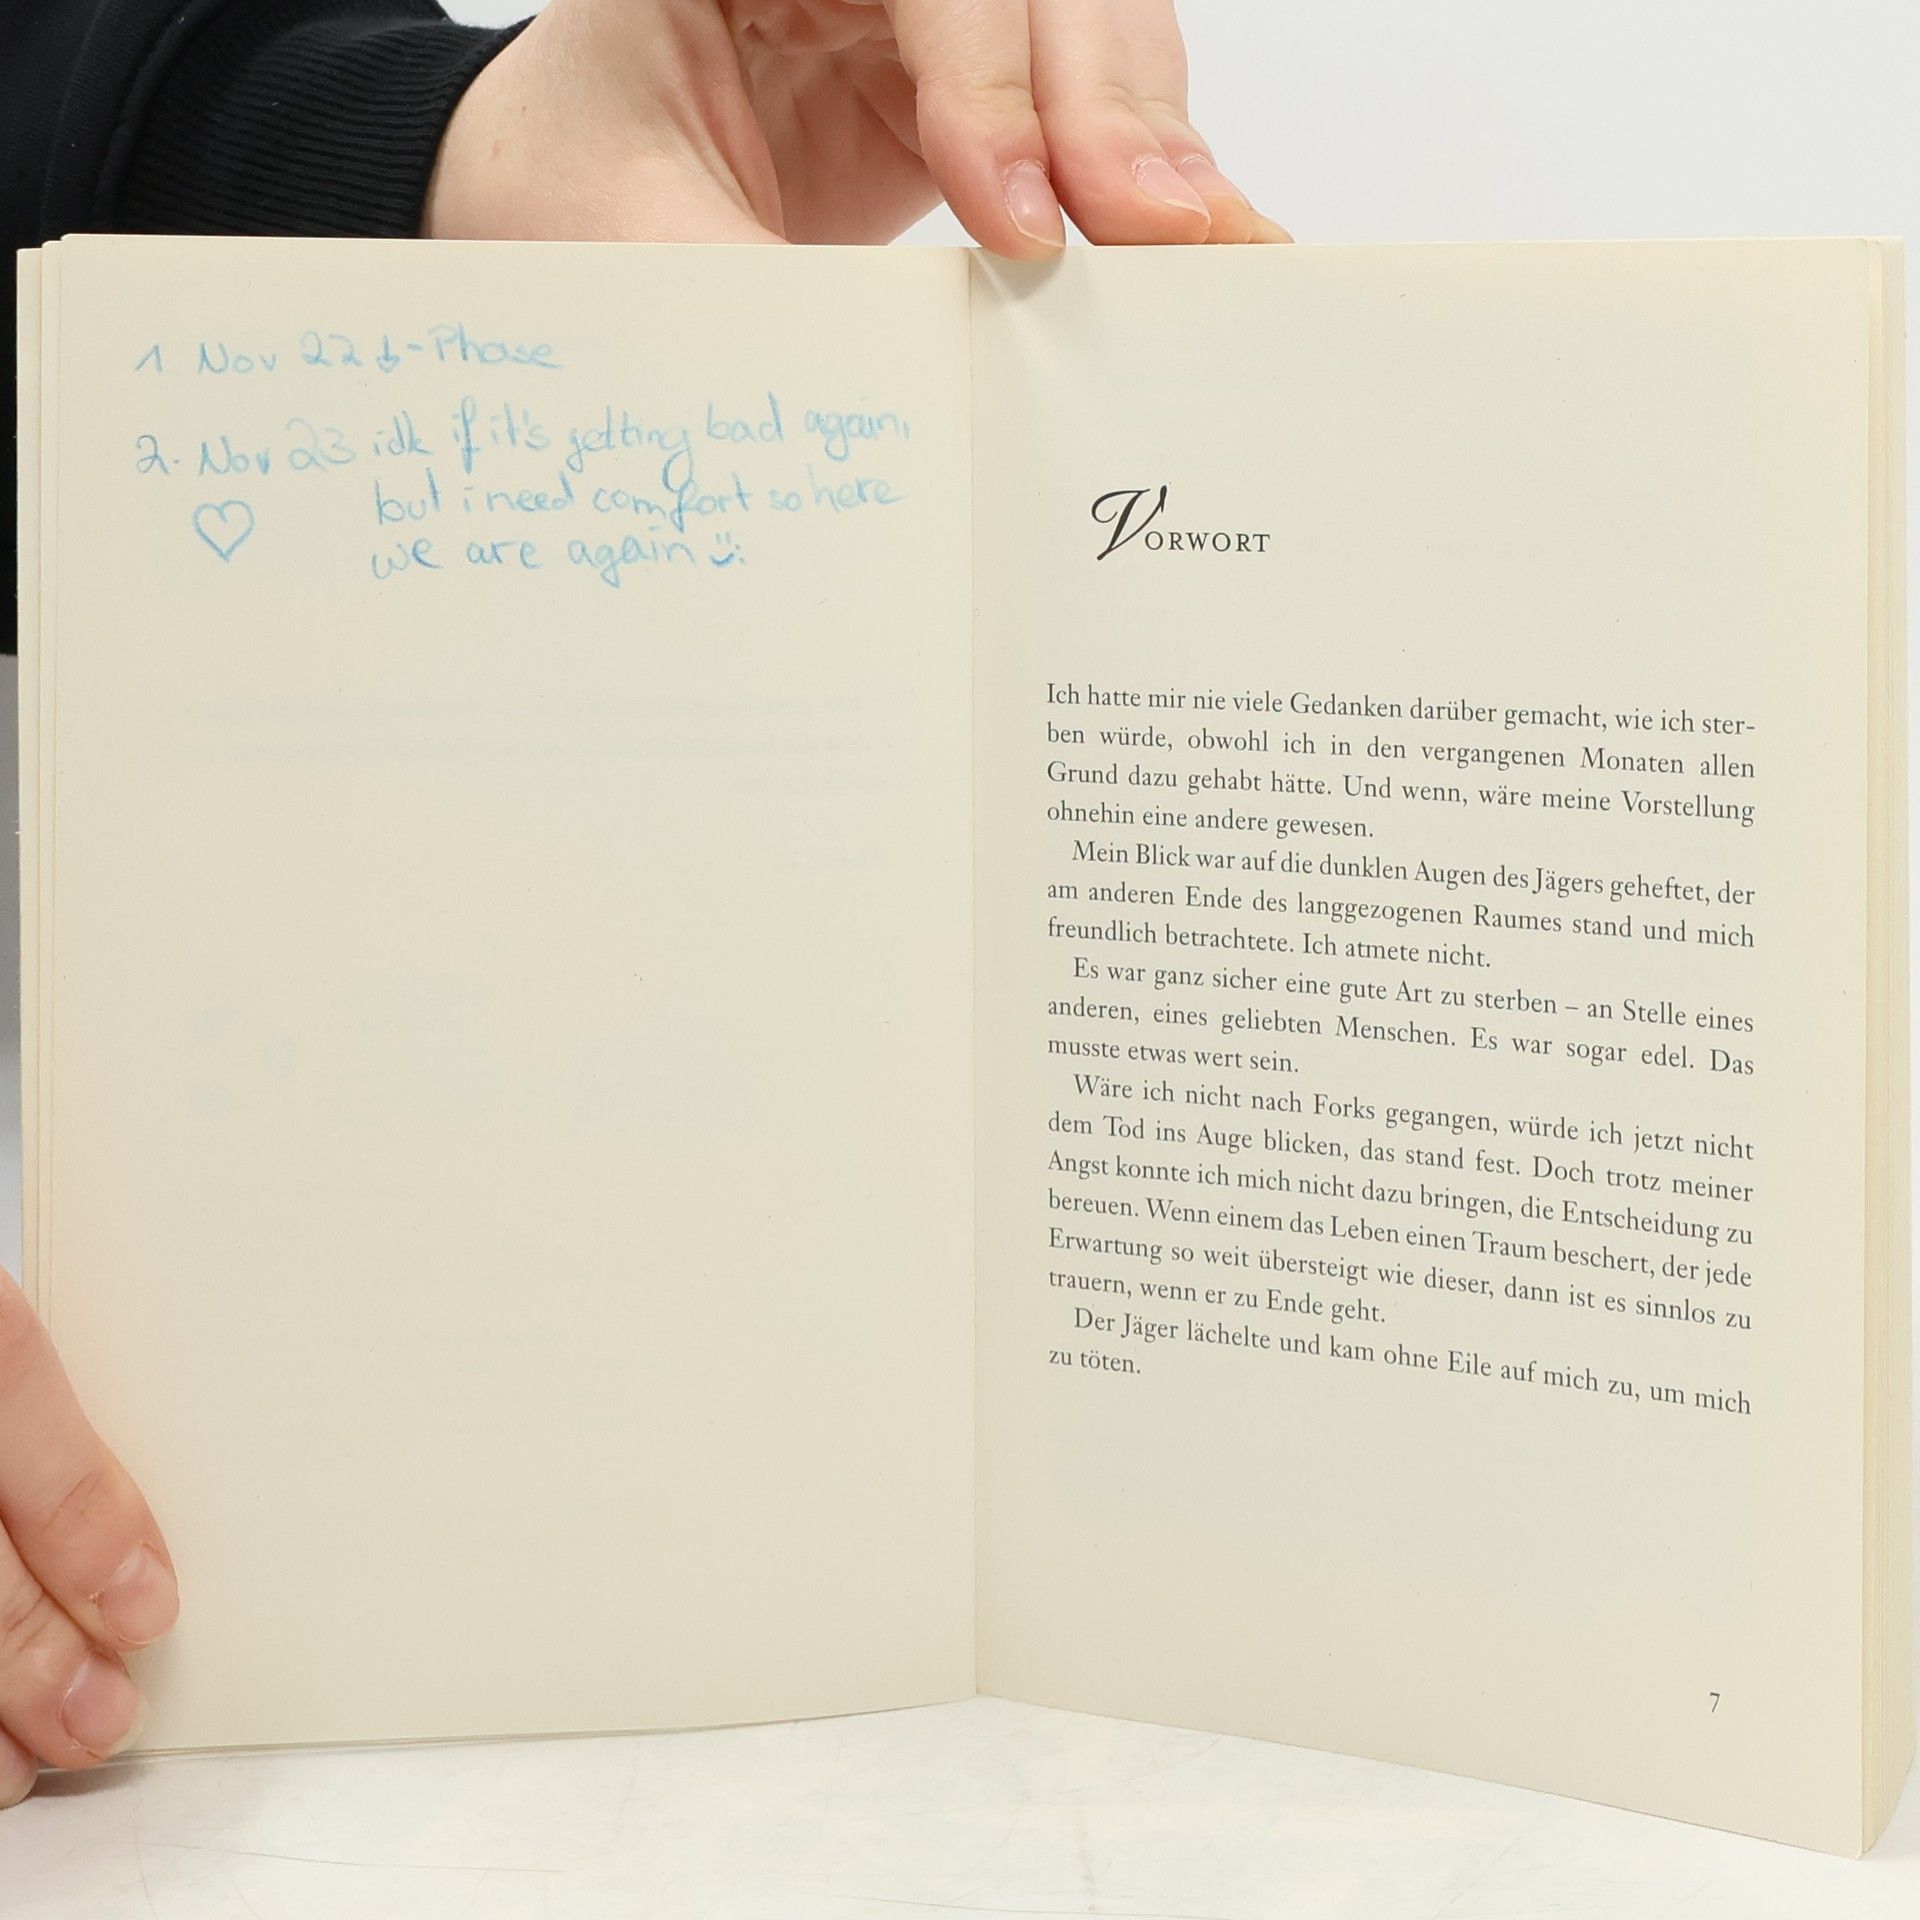 1 Nov 22 ↓-Phase
2. Nov 23 idk if it's getting bad again,
but i need comfort so here
♡ we are again :)
VORWORT
Ich hatte mir nie viele Gedanken darüber gemacht, wie ich ster-
ben würde, obwohl ich in den vergangenen Monaten allen
Grund dazu gehabt hätte. Und wenn, wäre meine Vorstellung
ohnehin eine andere gewesen.
Mein Blick war auf die dunklen Augen des Jägers geheftet, der
am anderen Ende des langgezogenen Raumes stand und mich
freundlich betrachtete. Ich atmete nicht.
Es war ganz sicher eine gute Art zu sterben – an Stelle eines
anderen, eines geliebten Menschen. Es war sogar edel. Das
musste etwas wert sein.
Wäre ich nicht nach Forks gegangen, würde ich jetzt nicht
dem Tod ins Auge blicken, das stand fest. Doch trotz meiner
Angst konnte ich mich nicht dazu bringen, die Entscheidung zu
bereuen. Wenn einem das Leben einen Traum beschert, der jede
Erwartung so weit übersteigt wie dieser, dann ist es sinnlos zu
trauern, wenn er zu Ende geht.
Der Jäger lächelte und kam ohne Eile auf mich zu, um mich
zu töten.
7